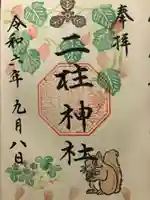 奉拝
二柱神社
令和二年九月八日